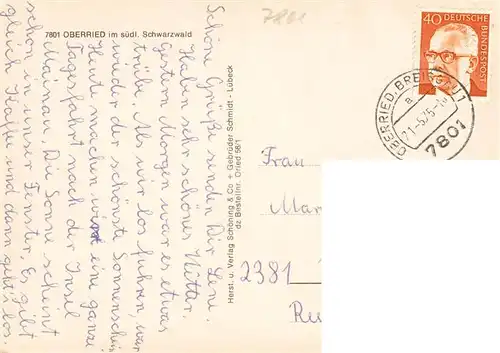 7801
7801 OBERRIED im südl. Schwarzwald
Schöne Grüße senden Dir Leni.
Haben sehr schönes Wetter.
Gestern Morgen war es etwas
trübe. Als wir los fuhren, war
wieder der schönste Sonnenschein
Heute machen wir eine ganze
Tagesfahrt nach der Insel
Mainau. Die Sonne scheint
schön in unser Fenster. Es gibt
gleich Kaffee und dann geht's los.
Herst. u. Verlag Schöning & Co + Gebrüder Schmidt - Lübeck
dz. Bestellnr. Oried 5661
40 DEUTSCHE
BUNDESPOST
OBERRIED, BREISGAU 1
a
21.-5.75-10
7801
Frau
Mar
2381
Ru